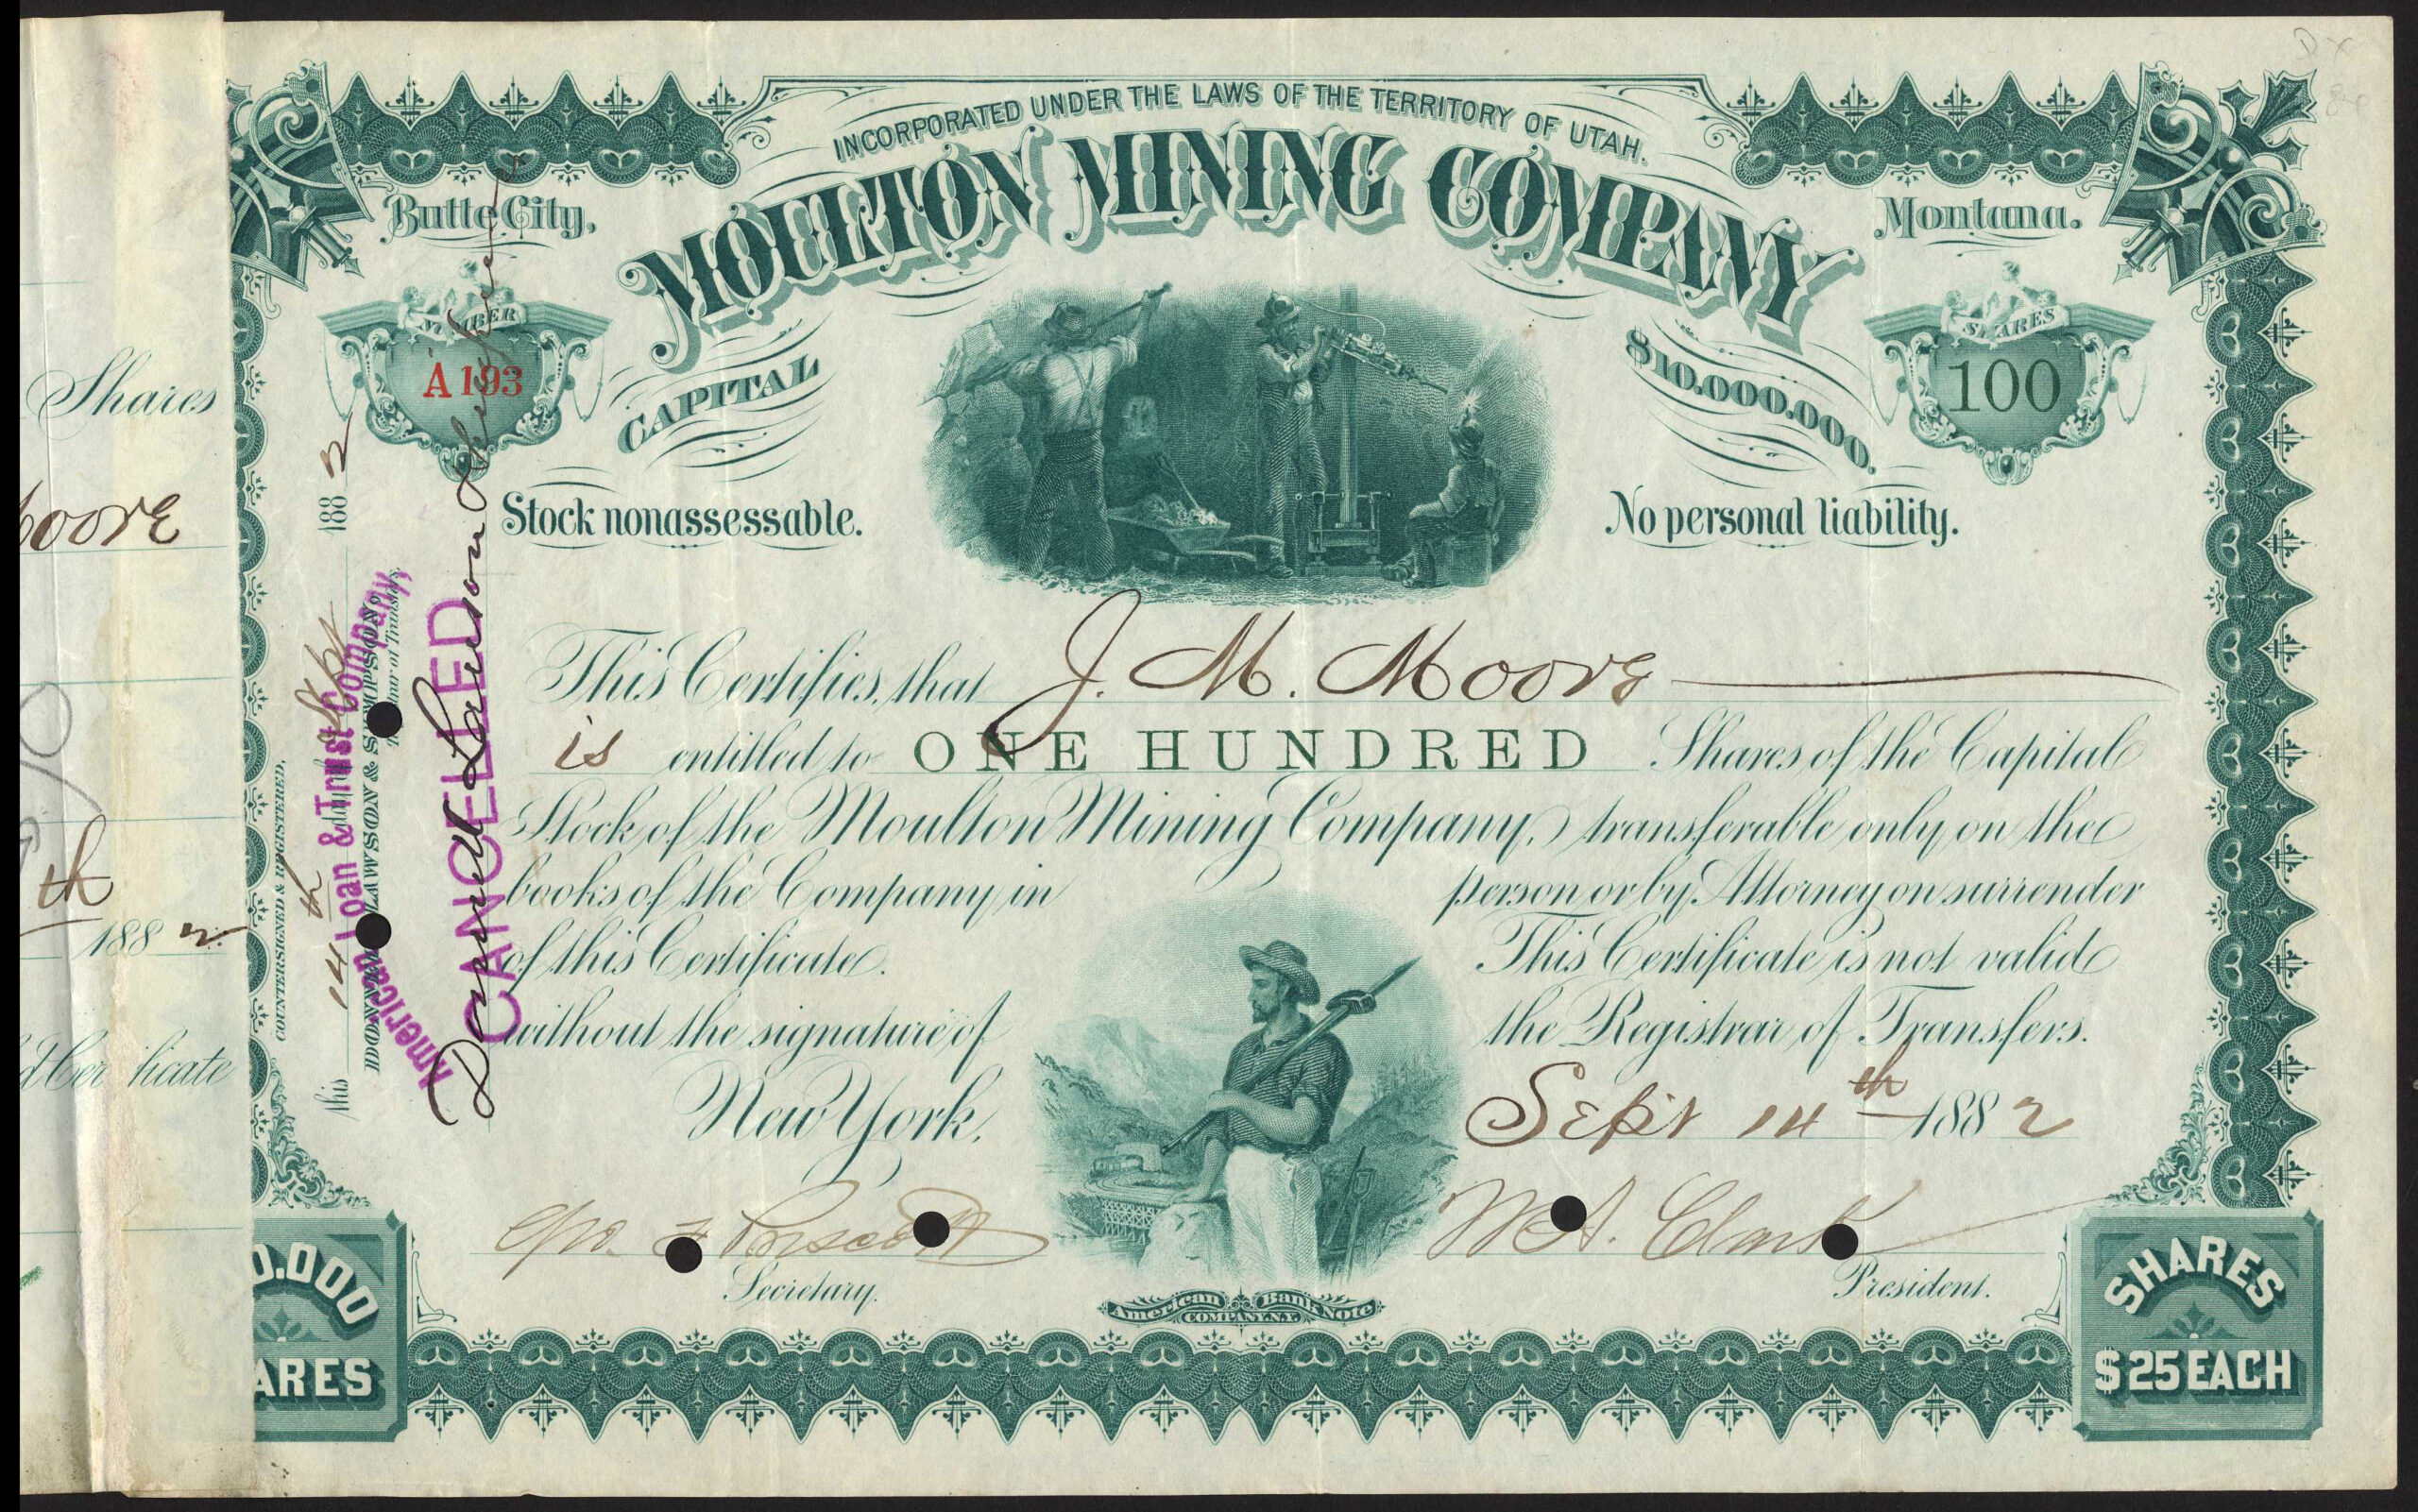 INCORPORATED UNDER THE LAWS OF THE TERRITORY OF UTAH.
MOULTON MINING COMPANY
Butte City,
Montana.
NUMBER
A 193
SHARES
100
CAPITAL
$10.000.000.
Stock nonassessable.
No personal liability.
This Certifies, that J. M. Moore
is entitled to ONE HUNDRED Shares of the Capital
Stock of the Moulton Mining Company, transferable only on the
books of the Company in person or by Attorney on surrender
of this Certificate. This Certificate is not valid
without the signature of the Registrar of Transfers.
New York, Sept 14th 1882
Geo. F Prescott
Secretary.
W A. Clark
President.
American Bank Note
COMPANY N.Y.
SHARES
$25 EACH
0.000
ARES
COUNTERSIGNED & REGISTERED,
this 14th day of Sept 1882
LAWSON & SIMPSON,
of Transfers.
American Loan & Trust Company,
CANCELLED
Donnell Lawson & Simpson
Shares
oore
th
1882
ficate